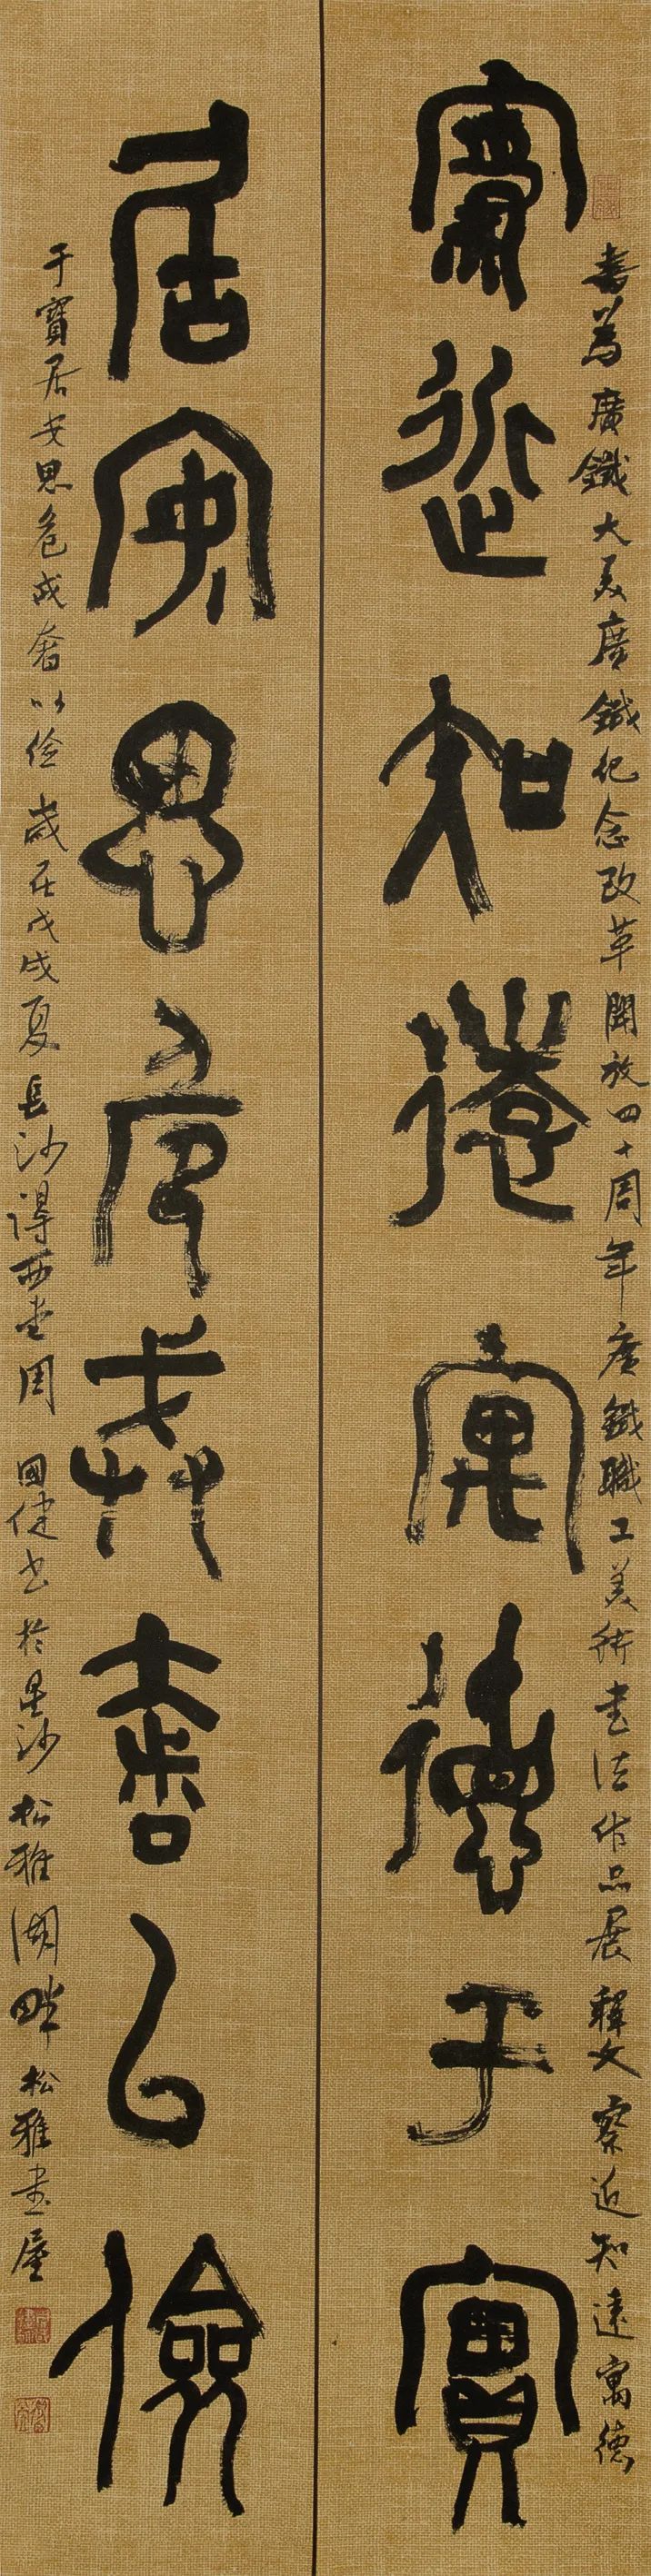 書為廣鐵大美廣鐵纪念改革開放四十周年廣鐵職工美術书法作品展釋文察近知遠寓德
察近知遠寓德于實
居安思危戒奢以儉
于寶居安思危戒奢以儉歲在戊戌夏長沙得西堂周國健书於星沙松雅湖畔松雅畫屋